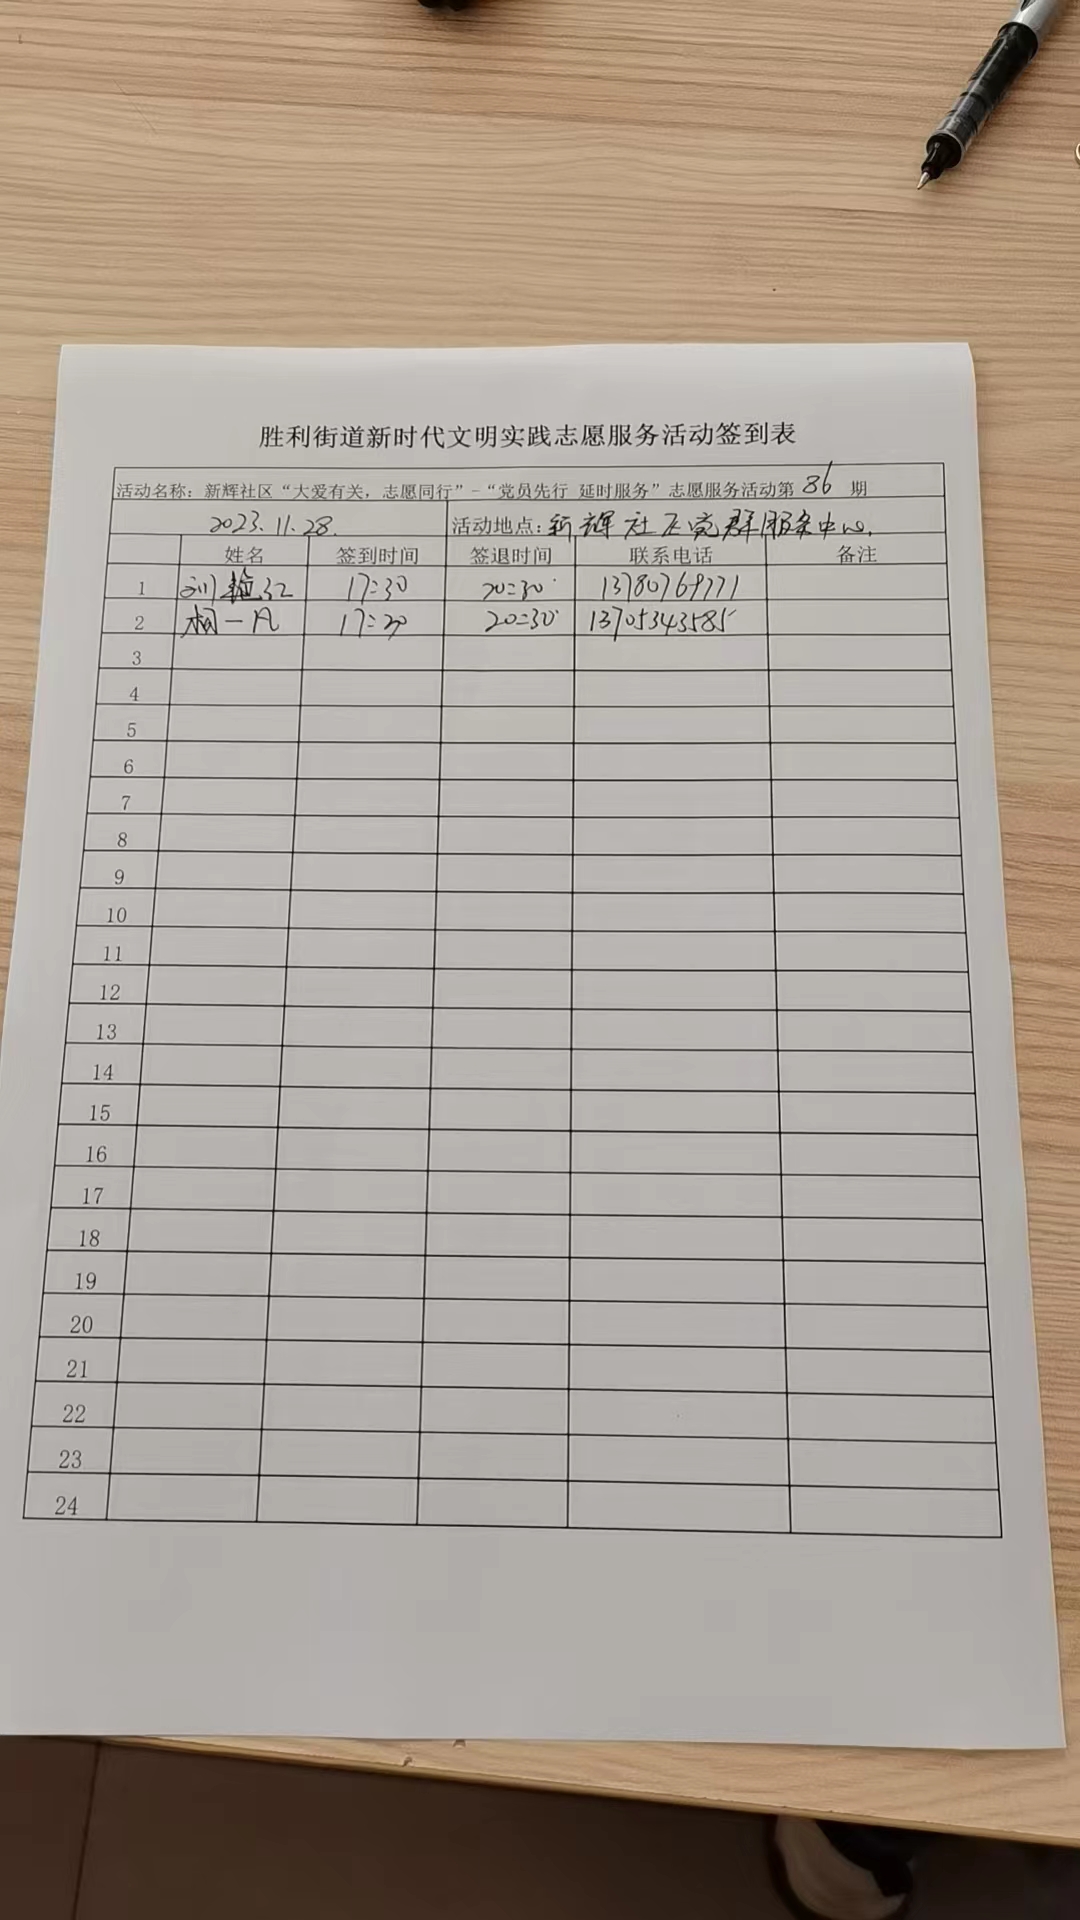 胜利街道新时代文明实践志愿服务活动签到表
活动名称：新辉社区“大爱有关，志愿同行”-“党员先行 延时服务”志愿服务活动第 86 期
2023.11.28. 活动地点：新辉社区党群服务中心.
姓名 签到时间 签退时间 联系电话 备注
1 刘艳红 17:30 20:30 13780769771
2 相一凡 17:30 20:30 13705343585
3
4
5
6
7
8
9
10
11
12
13
14
15
16
17
18
19
20
21
22
23
24